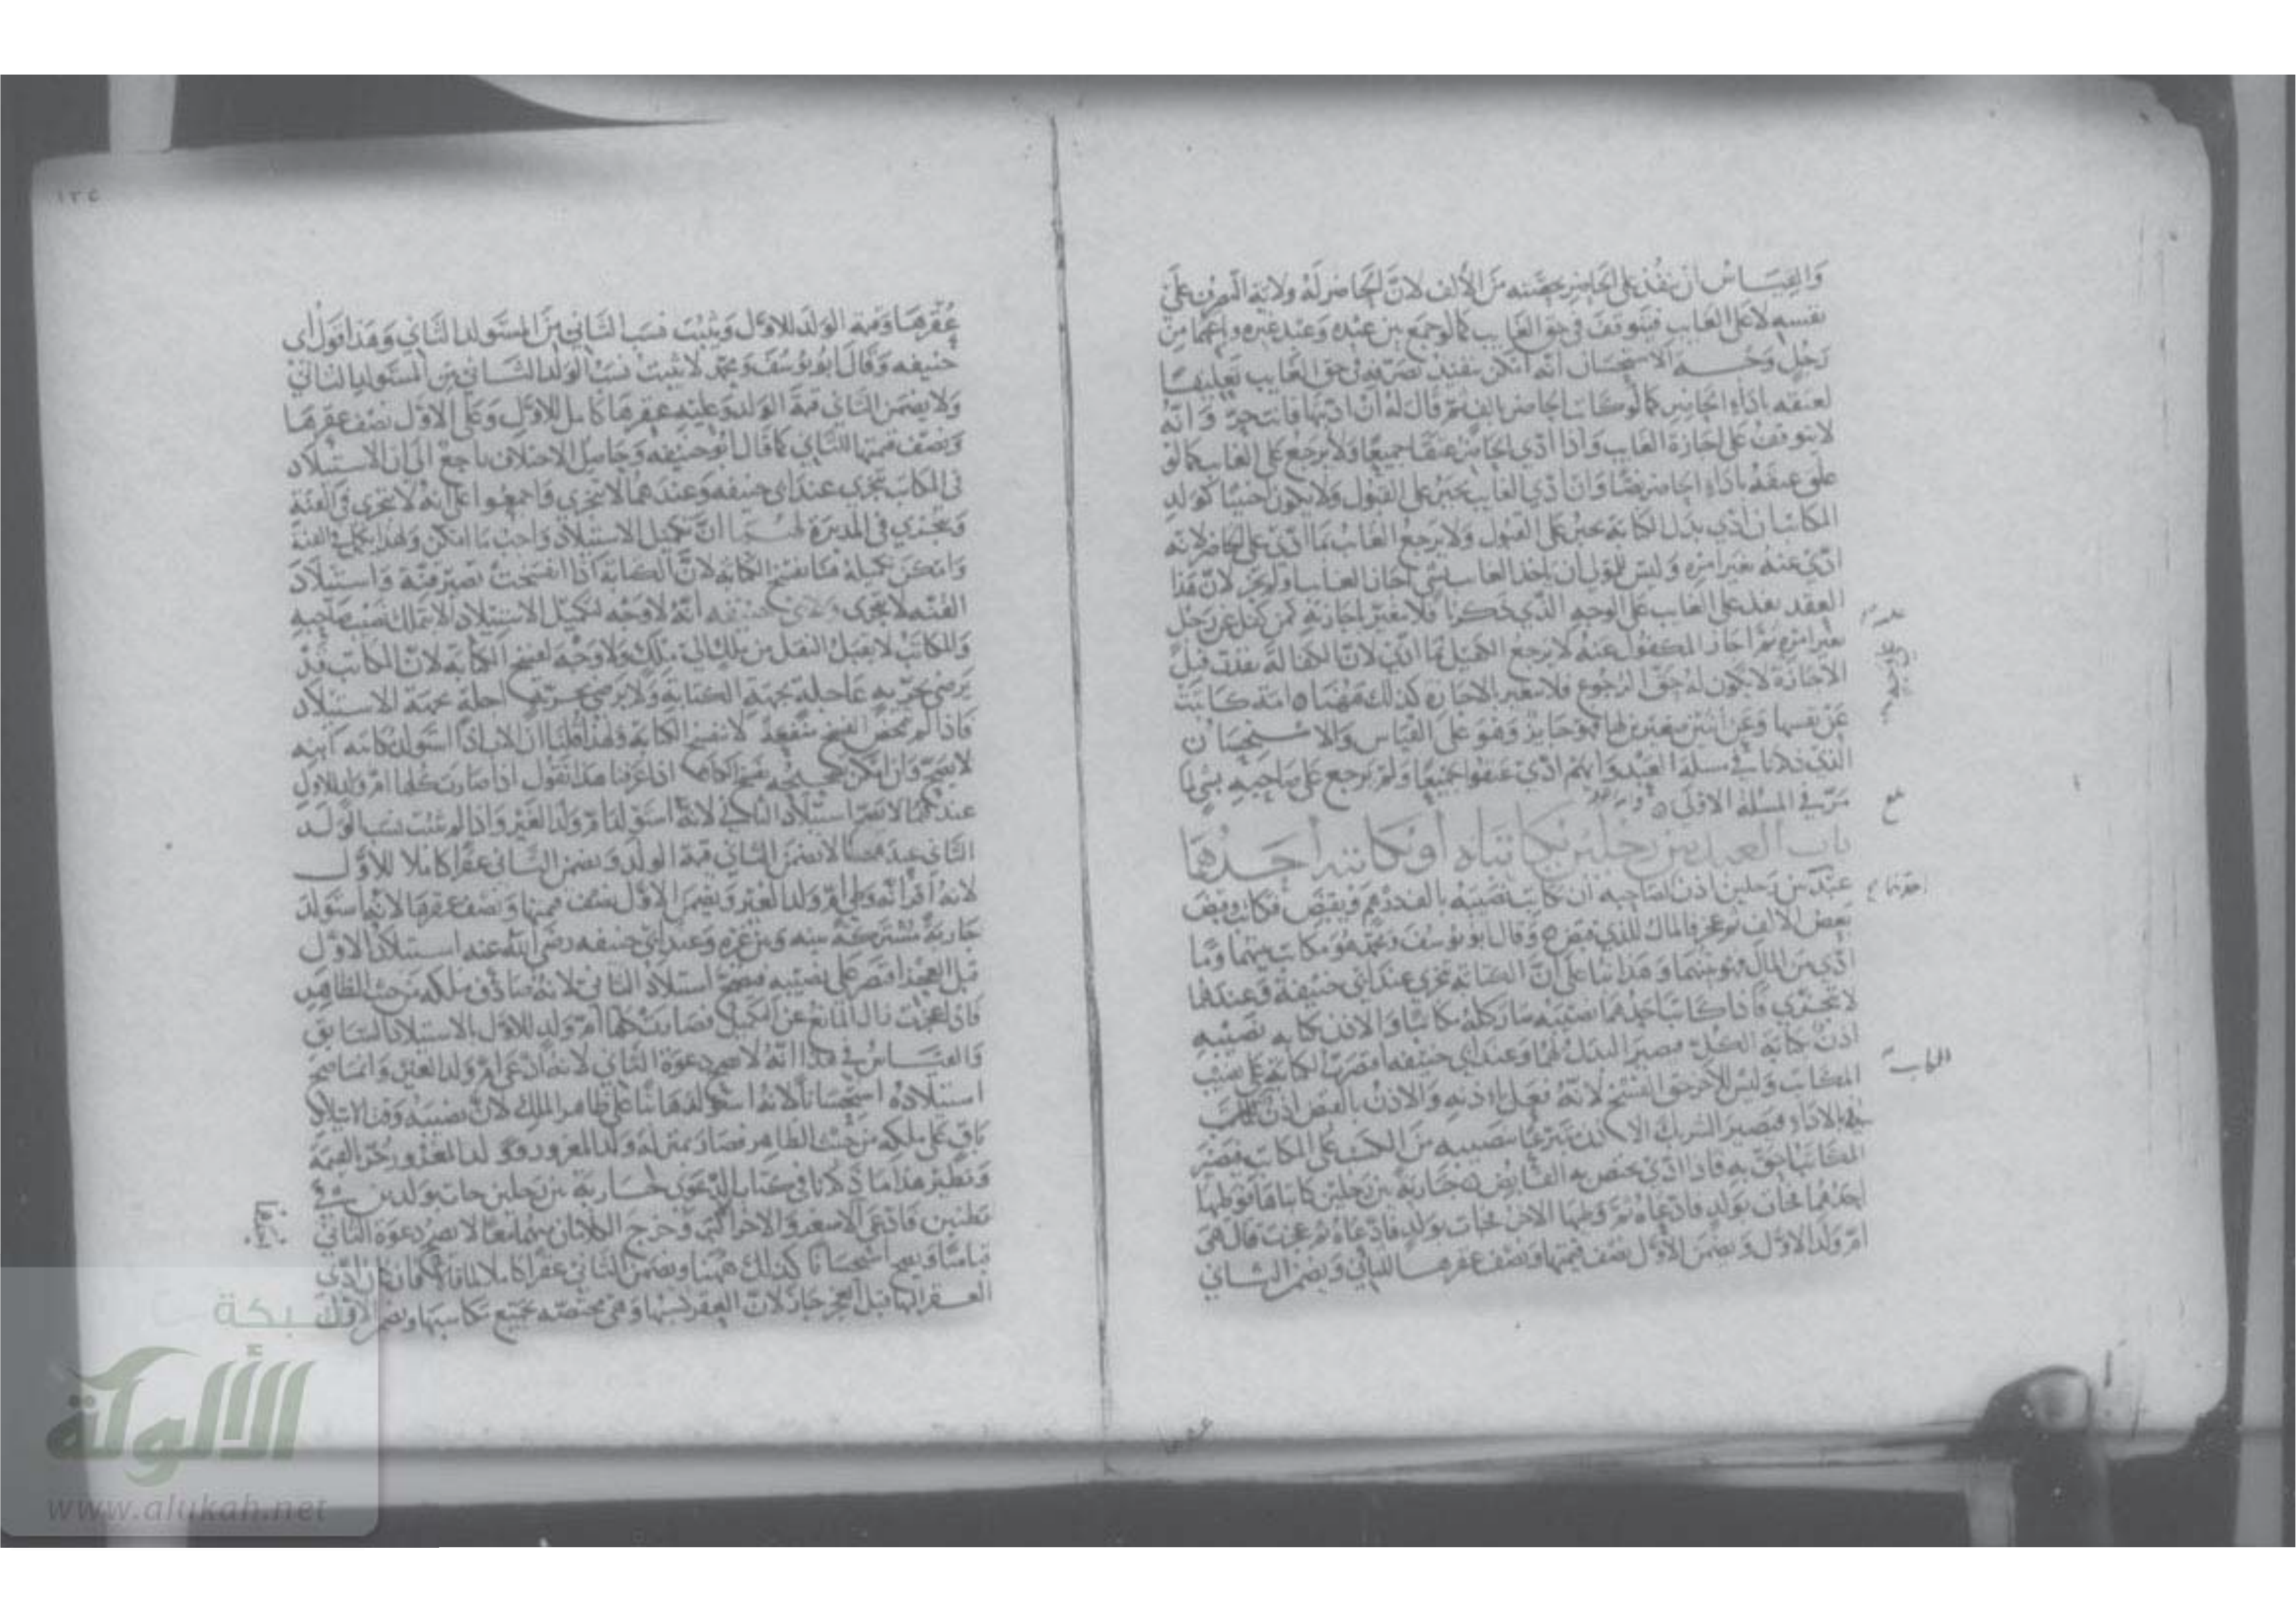 والقياس ان ينفذ على الحاضر بحصته من الألف لان الحاضر له ولاية التصرف على
نفسه لا على الغايب فيتوقف في حق الغايب كما لو جمع بين عبده وعبد غيره وباعهما من
رجل وجه الاستحسان انه امكن تنفيذ تصرفه في حق الغايب تعليقا
لعتقه باداء الحاضر كما لو كاتب الحاضر بالف ثم قال له ان اديتها فانت حر وانه
لا يتوقف على اجازة الغايب واذا ادي الحاضر عتقا جميعا ولا يرجع على الغايب كما لو
علق عتقه باداء الحاضر نصا وان ادي الغايب يجبر على القبول ولا يكون اجنبيا كولد
المكاتب ان ادى بدل الكتابة يجبر على القبول ولا يرجع الغايب بما ادى على الحاضر لانه
ادى عنه بغير امره وليس للمولى ان ياخذ الغايب بشي اجاز الغايب او لم يجز لان هذا
العقد نفذ على الغايب على الوجه الذي ذكرنا فلا يتغير باجازته كمن كفل عن رجل
بغير امره ثم اجاز المكفول عنه لا يرجع الكفيل بما ادى لان الكفالة نفذت قبل
الاجازة لا يكون له حق الرجوع فلا يتغير بالاجازة كذلك ههنا امة كاتبت
عن نفسها وعن ابنين صغيرين لها فهو جايز وهو على القياس والاستحسان
الذي ذكرنا في مسلة العبد وايهم ادى عتقوا جميعا ولم يرجع على صاحبه بشي لما
مر في المسلة الاولى
باب العبد بين رجلين يكاتبانه او يكاتبه احدهما
عبد بين رجلين اذن لصاحبه ان يكاتب نصيبه بالف درهم ويقبض فكاتب وقبض
بعض الالف ثم عجز فالمال للذي قبض وقال ابو يوسف ومحمد هو مكاتب بينهما وما
ادى من المال فهو بينهما وهذا بنا على ان الكتابة تتجزى عند ابي حنيفة وعندهما
لا تتجزى فاذا كاتب احدهما نصيبه صار كله مكاتبا والاذن بكتابة نصيبه
اذن بكتابة الكل فيصير البدل لهما وعند ابي حنيفه اقتصرت الكتابة على نصيب
المكاتب وليس للآخر حق الفسخ لانه فعل باذنه والاذن بالقبض اذن للمكاتب
في الاداء فيصير الشريك الآذن متبرعا بنصيبه من الكسب على المكاتب فيصير
المكاتب احق به فاذا ادى يختص به القابض جارية بين رجلين كاتباها فوطيها
احدهما فجات بولد فادعاه ثم وطيها الاخر فجات بولد فادعاه ثم عجزت قال هي
ام ولد الاول ويضمن الاول نصف قيمتها ونصف عقرها للثاني ويضمن الثاني
الكتابة
١٣٥
عقرها وقيمة الولد للاول ويثبت نسب الثاني من المستولد الثاني وهذا قول ابي
حنيفه وقال ابو يوسف ومحمد لا يثبت نسب الولد الثاني من المستولد الثاني
ولا يضمن الثاني قيمة الولد وعليه عقرها كامل للاول وعلى الاول نصف عقرها
ونصف قيمتها للثاني كما قال ابو حنيفه وحاصل الاختلاف راجع الى ان الاستيلاد
في المكاتبة تتجزى عند ابي حنيفه وعندهما لا تتجزى واجمعوا على انه لا تتجزى في القنة
وتتجزى في المدبرة لهما ان تكميل الاستيلاد واجب ما امكن ولهذا يكمل في القنة
وامكن تكميله هنا بفسخ الكتابة لان الكتابة اذا انفسخت تصير قنة واستيلاد
القنه لا تتجزى ولابي حنيفه انه لا وجه لتكميل الاستيلاد الا بتملك نصيب صاحبه
والمكاتب لا يقبل النقل من ملك الى ملك ولا وجه لفسخ الكتابة لان المكاتب قد
يرضى بحرية عاجلة بجهة الكتابة ولا يرضى بحرية اجلة بجهة الاستيلاد
لا يصح وان امكن تصحيحه بفسخ الكتابة اذا عرفنا هذا نقول اذا صارت كلها ام ولد للاول
عندهما لا يصح استيلاد الثاني لانه استولد ام ولد الغير واذا لم يثبت نسب الولد
الثاني عندهما لا يضمن الثاني قيمة الولد ويضمن الثاني عقرا كاملا للاول
لانه اقر انه وطي ام ولد الغير ويضمن الاول نصف قيمتها ونصف عقرها لانه استولد
جارية مشتركة بينه وبين غيره وعند ابي حنيفه رضي الله عنه استيلاد الاول
قبل العجز اقتصر على نصيبه فيصح استيلاد الثاني لانه صادف ملكه من حيث الظاهر
فاذا عجزت زال المانع عن التكميل فصارت كلها ام ولد للاول بالاستيلاد السابق
والقياس في هذا انه لا يصح دعوة الثاني لانه ادعى ام ولد الغير وانما صح
استيلاده استحسانا لانه استولدها بنا على ظاهر الملك لان نصيبه وقت الاستيلاد
باق على ملكه من حيث الظاهر فصار بمنزلة ولد المغرور وولد المغرور حر بالقيمة
ونظير هذا ما ذكرنا في كتاب الدعوى جارية بين رجلين جات بولدين في
بطنين فادعى الاصغر والاخر الاكبر وخرج الكلامان منهما معا لا يصح دعوة الثاني
قياسا ويصح استحسانا كذلك ههنا ويضمن الثاني عقرا كاملا
العقر اليها قبل العجز جاز لان العقر كسبها وهي مختصه بجميع مكاسبها ويضمن الاول
شبكة
الألوكة
www.alukah.net